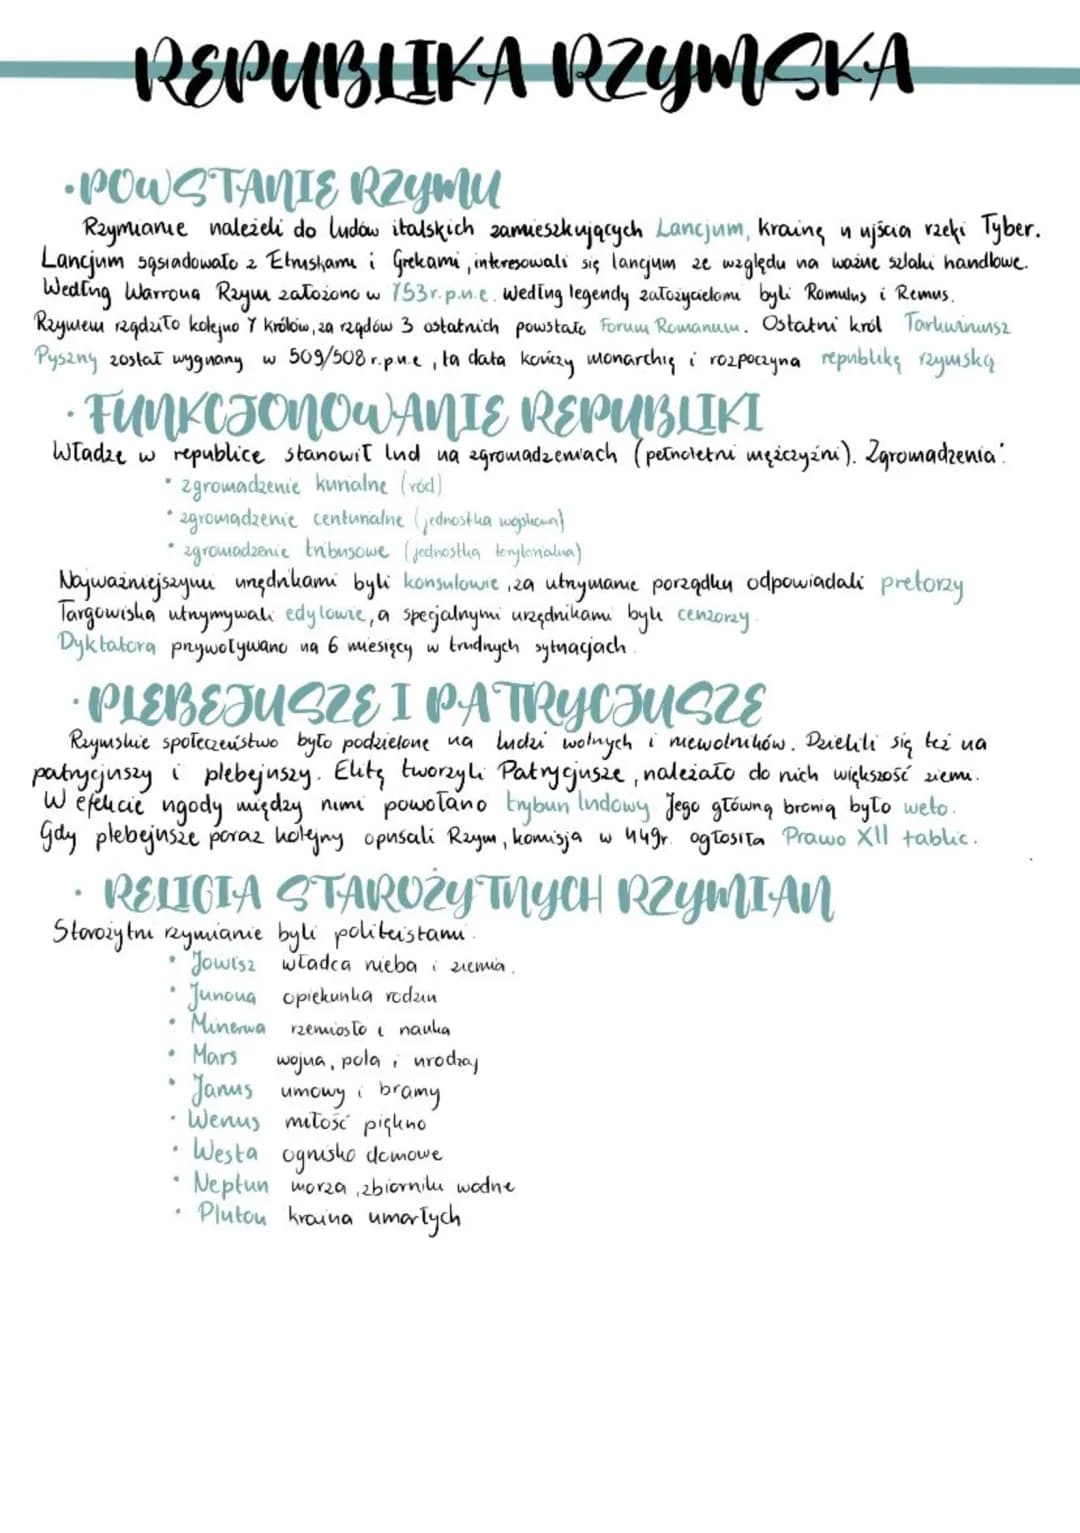 REPUBLIKA RZYMSKA
·POWSTANIE RZYMU
Rzymianie należeli do ludów italskich zamieszkujących Lancjum, krainę u ujścia rzeki Tyber.
Lancjum sąsiadowało z Etruskami i Grekami, interesowali się lancjum ze względu na ważne szlaki handlowe.
Według Warrona Rzym założono w 753r.p.n.e. Według legendy założycielami byli Romulus i Remus.
Rzymem rządziło kolejno 7 królów, za rządów 3 ostatnich powstało Forum Romanum. Ostatni król Tarkwiniusz
Pyszny został wygnany w 509/508 r.p.n.e, ta data kończy monarchię i rozpoczyna republikę rzymską
· FUNKCJONOWANIE REPUBLIKI
Władzę w republice stanowił lud na zgromadzeniach (pełnoletni mężczyźni). Zgromadzenia:
• zgromadzenie kurialne (ród)
• zgromadzenie centurialne (jednostka wojskowa)
• zgromadzenie tribusowe (jednostka terytorialna)
Najważniejszymi urzędnikami byli konsulowie, za utrzymanie porządku odpowiadali pretorzy
Targowiska utrzymywali edylowie, a specjalnymi urzędnikami byli cenzorzy.
Dyktatora przywoływano na 6 miesięcy w trudnych sytuacjach.
·PLEBEJUSZE I PATRYCJUSZE
Rzymskie społeczeństwo było podzielone na ludzi wolnych i niewolników. Dzielili się też na
patrycjuszy i plebejuszy. Elitę tworzyli Patrycjusze, należało do nich większość ziemi.
W efekcie ugody między nimi powołano trybun ludowy Jego główną bronią było weto.
Gdy plebejusze poraz kolejny opuścali Rzym, komisja w 449r. ogłosiła Prawo XII tablic.
· RELIGIA STAROŻYTNYCH RZYMIAN
Starożytni rzymianie byli politeistami.
• Jowisz władca nieba i ziemia.
• Junona opiekunka rodzin
• Minerwa rzemiosło i nauka
• Mars wojna, pola i urodzaj
• Janus umowy i bramy
• Wenus miłość piękno
• Westa ognisko domowe
• Neptun morza, zbiorniki wodne
• Pluton kraina umarłych